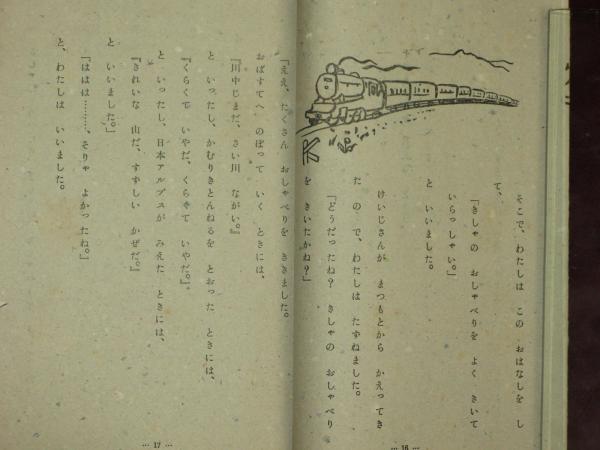 そこで、わたしは この おはなしを し
て、
「きしゃの おしゃべりを よく きいて
いらっしゃい。」
と いいました。
けいじさんが まつもとから かえってき
た ので、わたしは たずねました。
「どうだったね? きしゃの おしゃべり
を きいたかね?」
… 16 …
「ええ、たくさん おしゃべりを ききました。
おばすてへ のぼって いく ときには、
『川中じまだ、さい川 ながい。』
と いったし、かむりきとんねるを とおった ときには、
『くらくて いやだ、くらくて いやだ。』
と いったし、日本アルプスが みえた ときには、
『きれいな 山だ、すずしい かぜだ。』
と いいました。」
「ははは………、そりゃ よかったね。」
と、わたしは いいました。
… 17 …